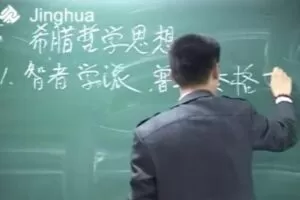 Jinghua
希腊哲学思想
1. 智者学派 普 格